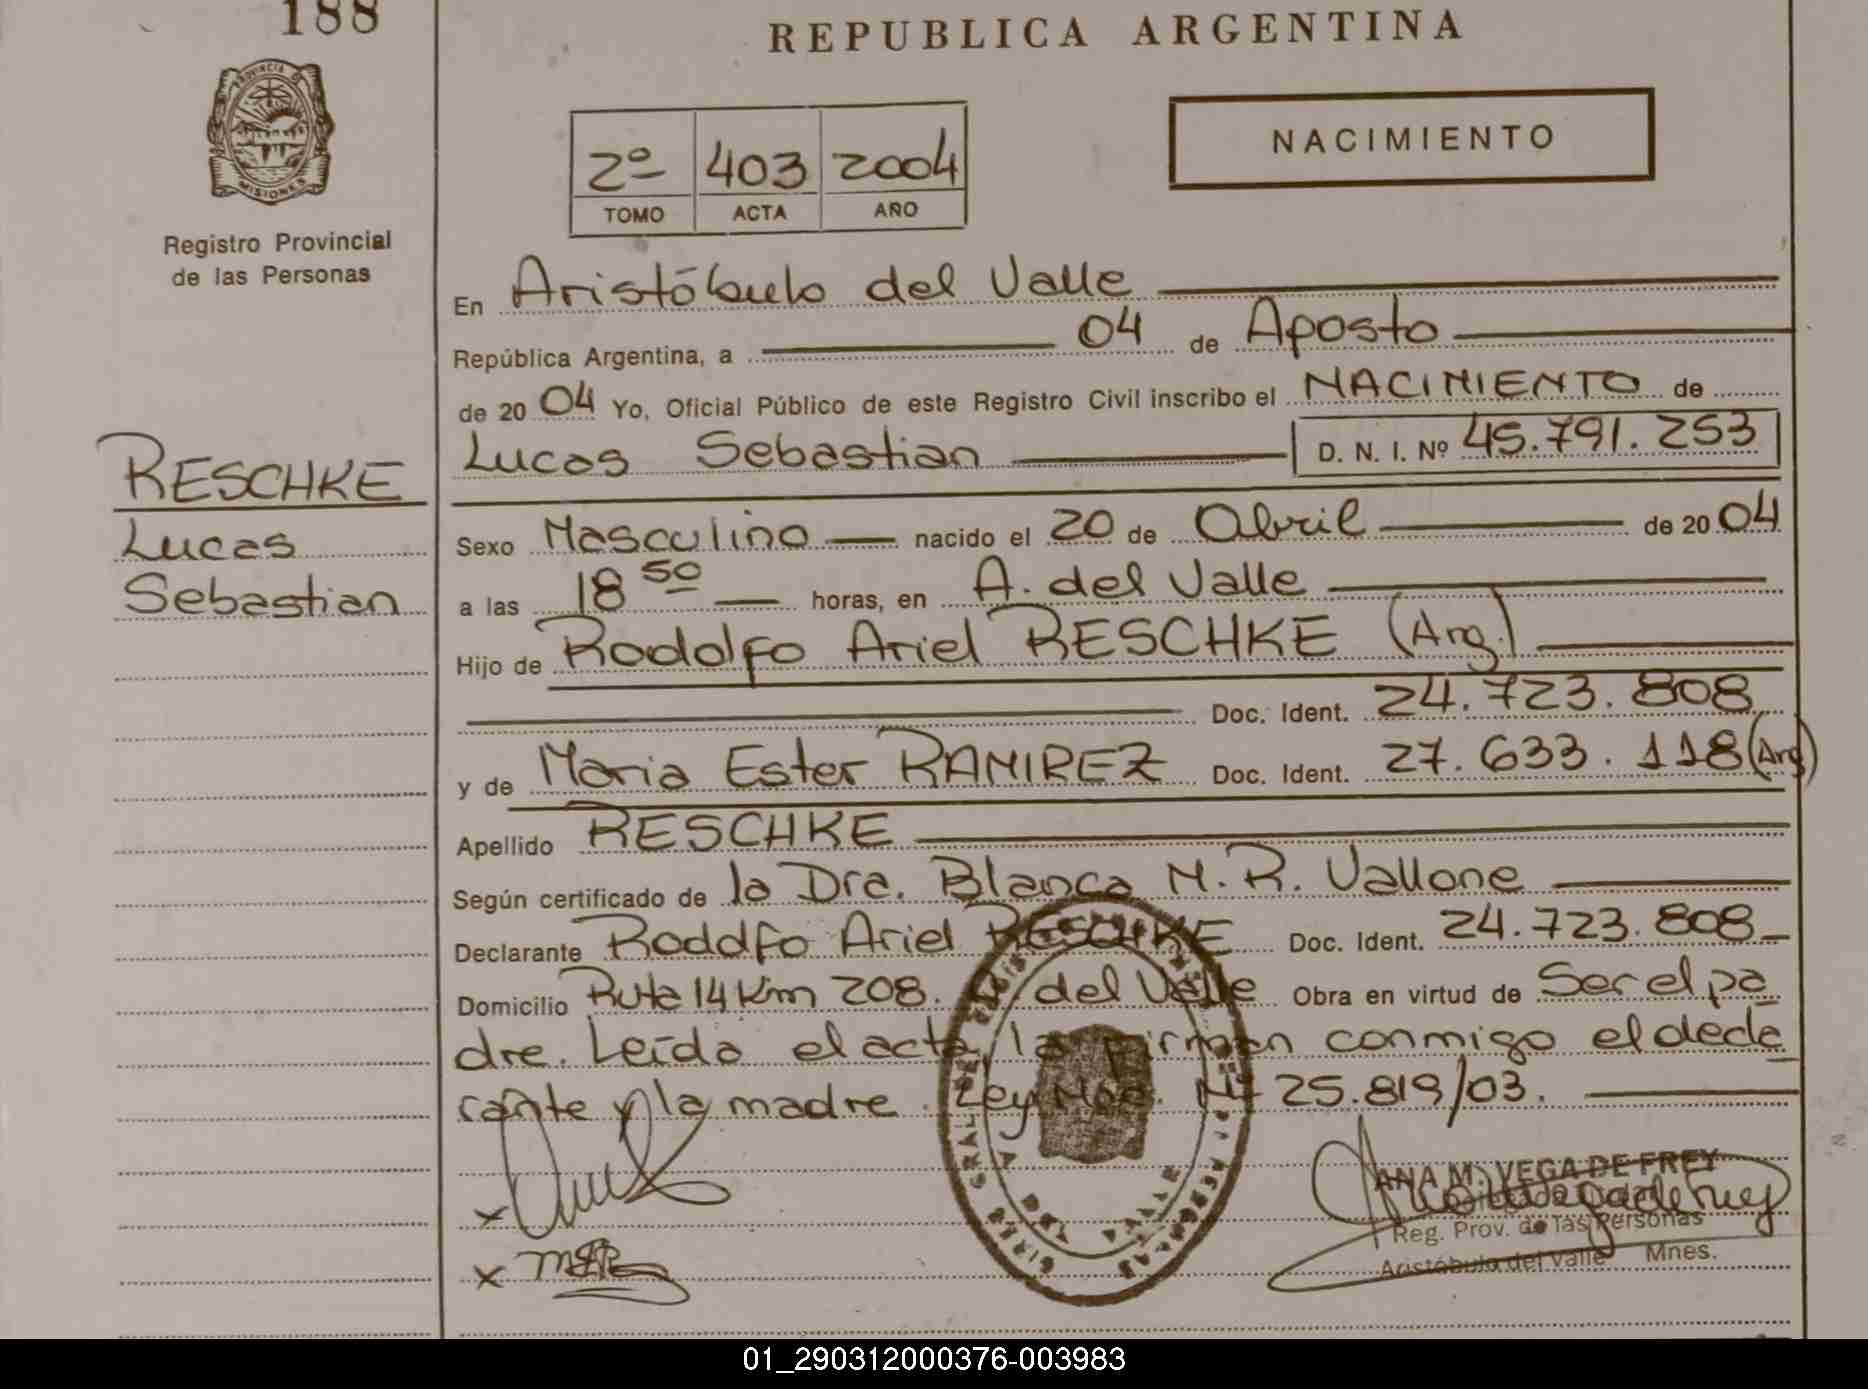 188
REPUBLICA ARGENTINA
PROVINCIA D
MISIONES
Registro Provincial
de las Personas
2º 403 2004
TOMO ACTA AÑO
NACIMIENTO
En Aristóbulo del Valle
República Argentina, a 04 de Agosto
de 20 04 Yo, Oficial Público de este Registro Civil inscribo el NACIMIENTO de
Lucas Sebastian D. N. I. Nº 45.791.253
RESCHKE
Lucas
Sebastian
Sexo Masculino nacido el 20 de Abril de 20 04
a las 18 50 horas, en A. del Valle
Hijo de Rodolfo Ariel RESCHKE (Arg.)
Doc. Ident. 24.723.808
y de Maria Ester RAMIREZ Doc. Ident. 27.633.118 (Arg)
Apellido RESCHKE
Según certificado de la Dra. Blanca M. R. Vallone
Declarante Rodolfo Ariel RESCHKE Doc. Ident. 24.723.808
Domicilio Ruta 14 Km 208. A. del Valle Obra en virtud de Ser el pa
dre. Leída el acta, la firman conmigo el decla
rante y la madre. Ley Nac. Nº 25.819/03.
x
x
ANA M. VEGA DE FREY
Reg. Prov. de las Personas
Aristóbulo del Valle Mnes.
01_290312000376-003983